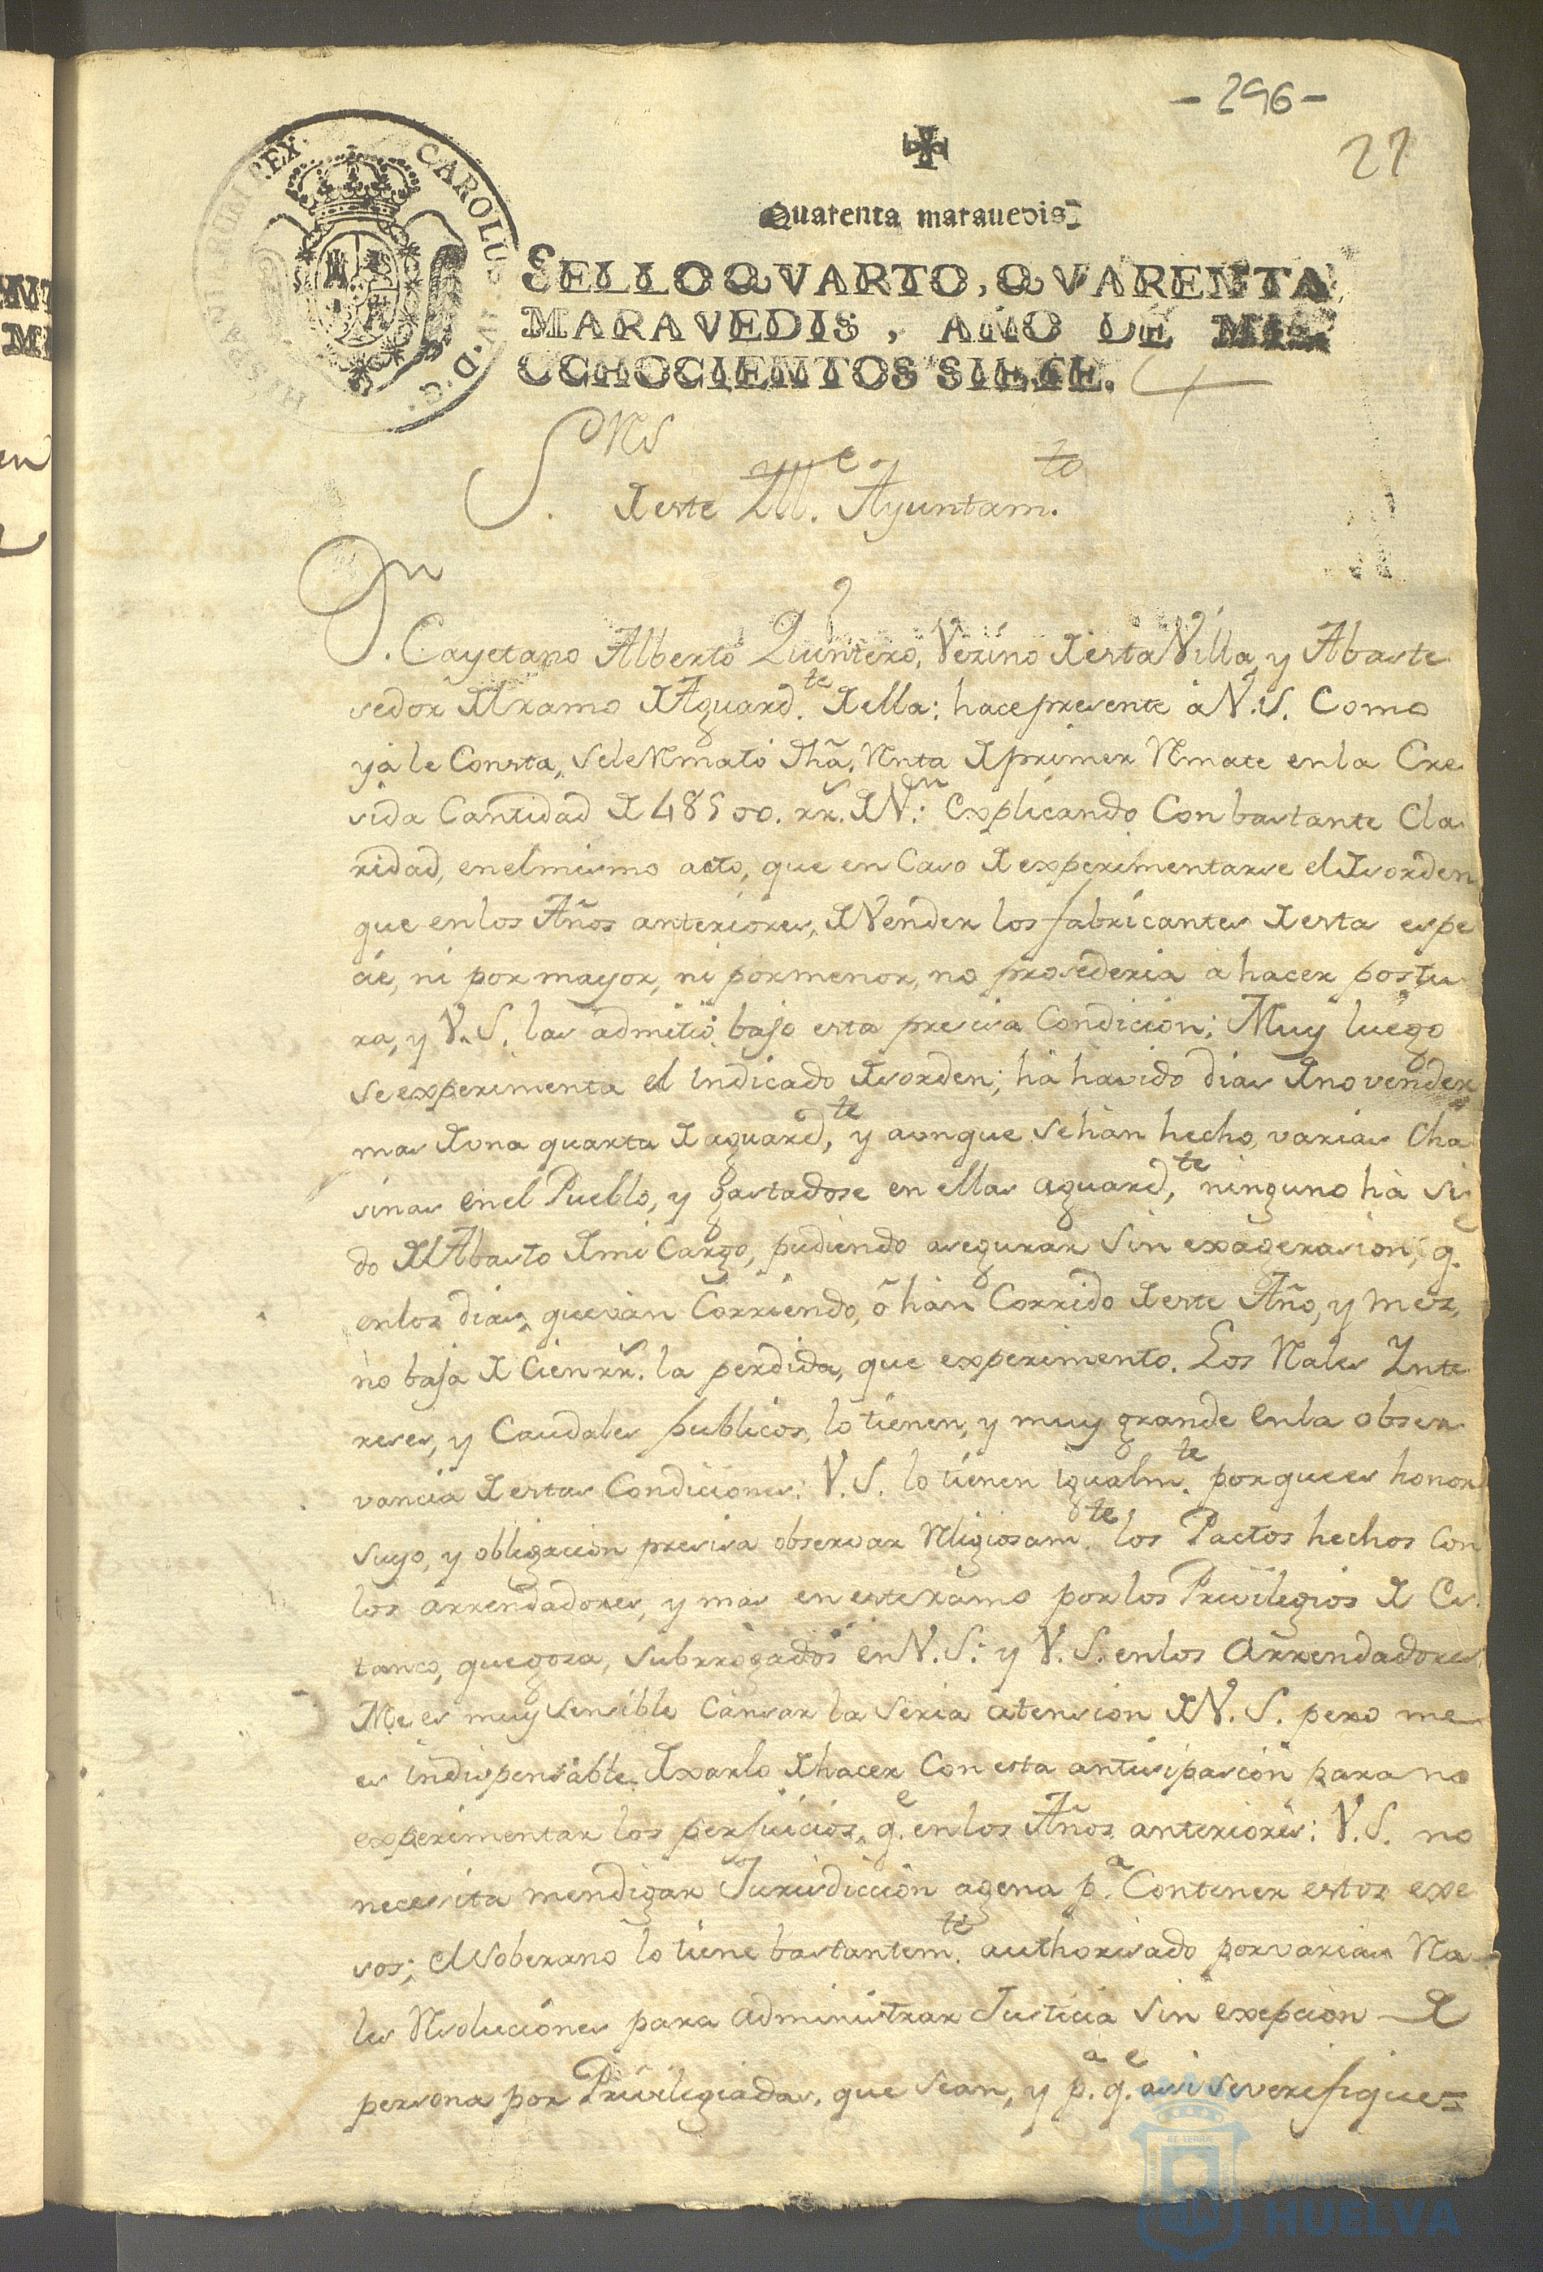 - 296 -
21
HISPANIARUM REX.
CAROLUS IV. D. G.
Quarenta maravedis.
SELLO QVARTO, QVARENTA
MARAVEDIS, AÑO DE MIL
OCHOCIENTOS SIETE.
S.res
de este Ill.e Ayuntam.to
D.n Cayetano Alberto Quintero, Vezino de esta Villa, y Abaste
sedor del ramo de Aguard.te de ella: hace presente a V.S. Como
ya le Consta, se le Remato dha. Renta de primer Remate en la Cre
sida Cantidad de 48500. rr.s de V.on Explicando Con bastante Cla
ridad, en el mismo acto, que en Caso de experimentarse el desorden
que en los Años anteriores, de Vender los fabricantes de esta espe
cie, ni por mayor, ni por menor, no prosederia a hacer postu
ra, y V.S. las admitió bajo esta presisa Condicion: Muy luego
se experimenta el indicado desorden; há havido dias de no vender
mas de una quarta de aguard.te, y aunque se hán hecho varias Cha
sinas en el Pueblo, y gastadose en ellas aguard.te, ninguno há si
do del Abasto de mi Cargo, pudiendo asegurar sin exagerasion, q.e
en los dias, que ván Corriendo, ó hán Corrido de este Año, y mes,
no baja de Cien rr.s la perdida, que experimento. Los Rales Inte
reses, y Caudales publicos, lo tienen, y muy grande en la obser
vancia de estas Condiciones: V.S. lo tienen igualm.te porque es honor
suyo, y obligacion presisa observar Religiosam.te los Pactos hechos Con
los arrendadores, y mas en este ramo por los Privilegios de Es
tanco, que gosa, subrrogados en V.S.: y V.S. en los Arrendadores
Me es muy sensible Cansar la seria atension de V.S. pero me
es indispensable dexarlo de hacer Con esta antisipasion para no
experimentar los perjuicios, q.e en los Años anteriores: V.S. no
necesita mendigar Jurisdiccion agena p.a Contener estos exe
sos; el Soberano lo tiene bastantem.te authorisado por varias Ra
les Resoluciones para administrar Justicia sin exepcion de
persona por Privilegiadas, que sean, y p.a q.e asi se verifique=
AYUNTAMIENTO DE
HUELVA